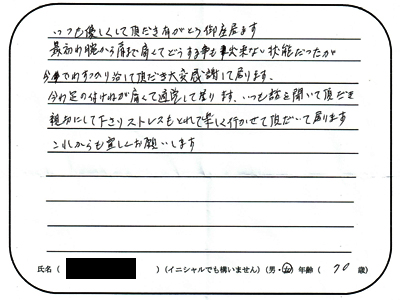 いつも優しくして頂だき有がとう御座居ます
最初わ腕から肩まで痛くてどうする事も出来ない状能だったが
今でわすっかり治して頂だき大変感謝して居ります、
今わ足の付けねが痛くて通院して居ります、いつも話を聞いて頂だき
親切にして下さりストレスもとれて楽しく行かせて頂だいて居ります
これからも宜しくお願いします
氏名( )(イニシャルでも構いません)(男・女)年齢( 70 歳)